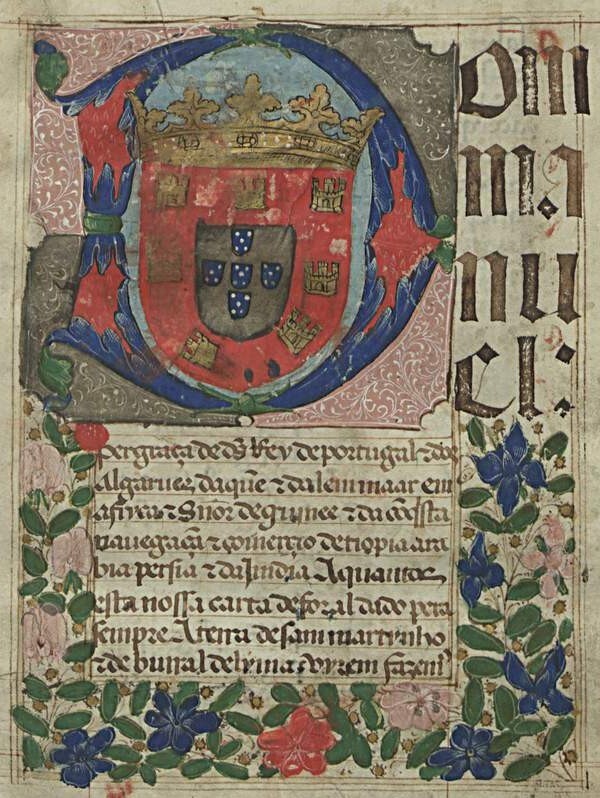 Dom
ma
nu
el:
per graça de ds Rey de portugal & dos
Algarues daquē & dalem maar em
africa & Snõr de guinee & da comsta
navegaçã & comerçio de tiopia ara
bia persia & da Jndia A quantos
esta nossa carta de foral dado pera
sempre A terra de sam martinho
& de burral de lyma virem fazemˢ